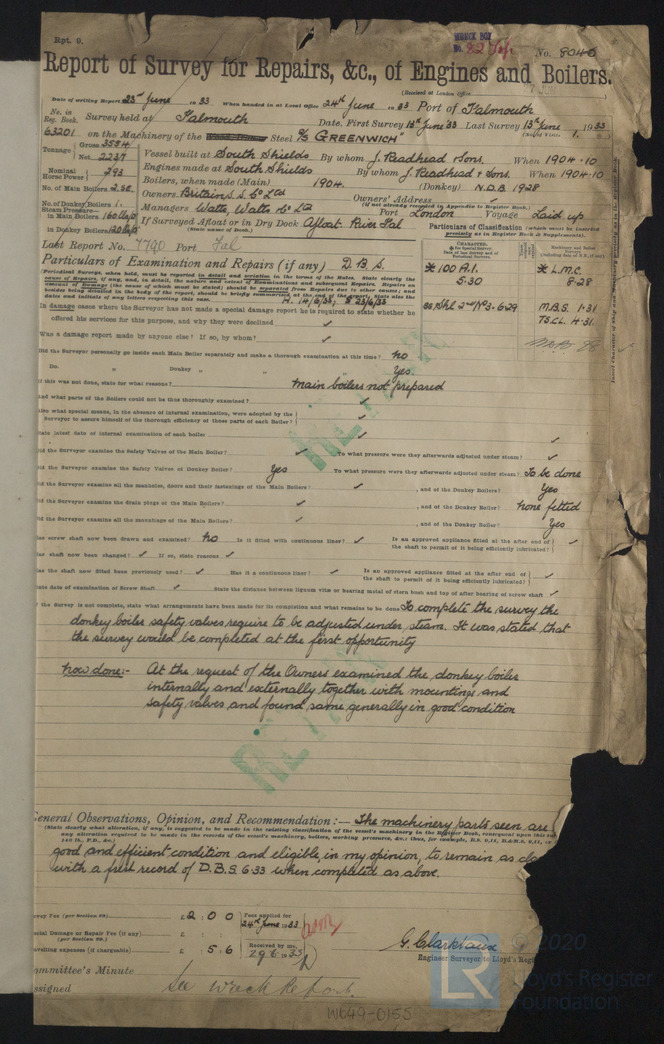 Rpt. 9.
WRECK BOX
No.
No. 8040
Report of Survey for Repairs, &c., of Engines and Boilers.
(Received at London Office
Date of writing Report 23rd June 1933 When handed in at Local Office 24th June 1933 Port of Falmouth
No. in Reg. Book. Survey held at Falmouth Date, First Survey 13th June 33 Last Survey 13th June 1933
63201 on the Machinery of the Steel S/S "GREENWICH" (No. of Visits 1.)
Tonnage Gross 3554 Net 2237
Vessel built at South Shields By whom J. Readhead & Sons. When 1904-10
Nominal Horse Power 293
Engines made at South Shields By whom J. Readhead & Sons. When 1904-10
No. of Main Boilers 2 SE.
Boilers, when made (Main) 1904. (Donkey) N.D.B 1928
No. of Donkey Boilers 1.
Owners Britain S.S. Co Ltd Owners' Address
(if not already recorded in Appendix to Register Book.)
Steam Pressure in Main Boilers 160 lbs/□
Managers Watts, Watts & Co Ld Port London Voyage Laid up
in Donkey Boilers 120 lbs/□
If Surveyed Afloat or in Dry Dock Afloat River Fal
(State name of Dock.)
Particulars of Classification (which must be inserted precisely as in Register Book & Supplements).
Last Report No. 7790 Port Fal
Particulars of Examination and Repairs (if any) D.B.S.
100 A.1. L.M.C.
5.30 8-28
M.B.S. 1-31
T.S.CL. 4-31
In damage cases where the Surveyor has not made a special damage report he is required to state whether he
offered his services for this purpose, and why they were declined
Was a damage report made by anyone else? If so, by whom?
Did the Surveyor personally go inside each Main Boiler separately and make a thorough examination at this time? no
Do. " Donkey " " Yes
If this was not done, state for what reasons? Main boilers not prepared
And what parts of the Boilers could not be thus thoroughly examined?
Also what special means, in the absence of internal examination, were adopted by the
Surveyor to assure himself of the thorough efficiency of those parts of each Boiler?
State latest date of internal examination of each boiler
Did the Surveyor examine the Safety Valves of the Main Boiler? To what pressure were they afterwards adjusted under steam?
Did the Surveyor examine the Safety Valves of Donkey Boiler? Yes To what pressure were they afterwards adjusted under steam? To be done
Did the Surveyor examine all the manholes, doors and their fastenings of the Main Boilers? , and of the Donkey Boilers? Yes
Did the Surveyor examine the drain plugs of the Main Boilers? , and of the Donkey Boiler? none fitted
Did the Surveyor examine all the mountings of the Main Boilers? , and of the Donkey Boiler? Yes
Has screw shaft now been drawn and examined? no Is it fitted with continuous liner? Is an approved appliance fitted at the after end of
the shaft to permit of it being efficiently lubricated?
Has shaft now been changed? If so, state reasons
Has the shaft now fitted been previously used? Has it a continuous liner? Is an approved appliance fitted at the after end of
the shaft to permit of it being efficiently lubricated?
State date of examination of Screw Shaft State the distance between lignum vitæ or bearing metal of stern bush and top of after bearing of screw shaft
If the Survey is not complete, state what arrangements have been made for its completion and what remains to be done To complete the survey the
donkey boiler safety valves require to be adjusted under steam. It was stated that
the survey would be completed at the first opportunity
Now done:- At the request of the Owners examined the donkey boiler
internally and externally together with mountings and
safety valves and found same generally in good condition
General Observations, Opinion, and Recommendation:— The machinery parts seen are
good and efficient condition and eligible, in my opinion, to remain as
with a fresh record of D.B.S. 6-33 when completed as above.
Survey Fee (per Section 29) £ 2 : 0 0 Fees applied for 24th June 1933
Special Damage or Repair Fee (if any) (per Section 29.) £
Travelling expenses (if chargeable) £ 5 : 6 Received by me,
G. Clark
Engineer Surveyor to Lloyd's
Committee's Minute
Assigned See Wreck Report.
W649-0155
© 2020
LR
Lloyd's Register
Foundation